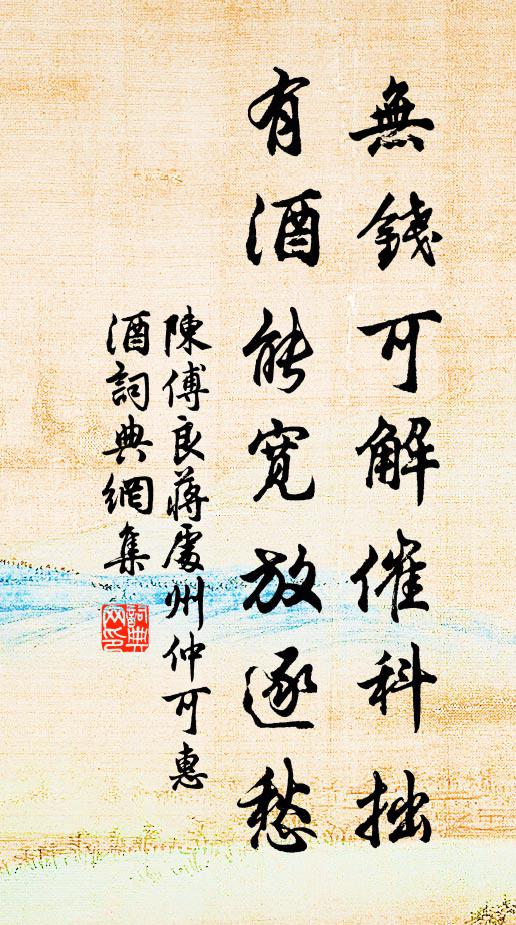 無錢可解催科拙
有酒能寬放逐愁
陳傅良蔣處州仲可惠
酒詞典網集
詞典
网印